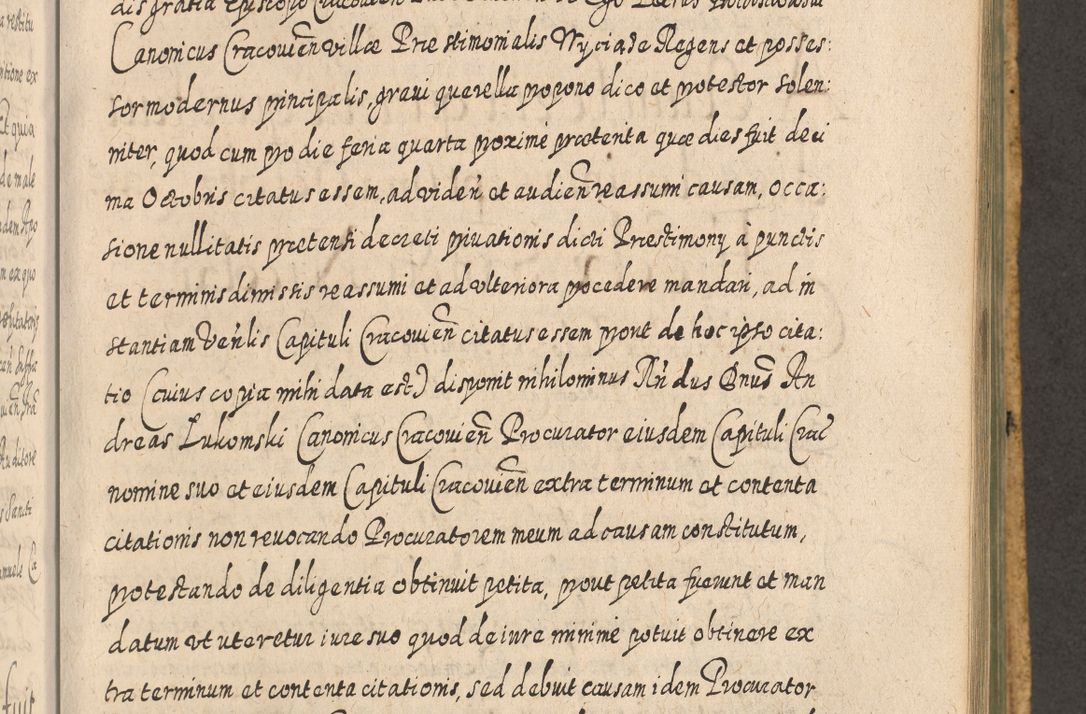 Canonicus Cracouien̄ villæ Præstimonialis Wyciąże Regens et posses:
sor modernus principalis, graui querella propono dico et protestor solen:
niter, quod cum pro die feria quarta proxime præterita quæ dies fuit deci
ma Octobris citatus essem, ad viden̄ et audien̄ reassumi causam, occa:
sione nullitatis prætensi decreti priuationis dicti Præstimonij à punctis
et terminis dimissis reassumi et ad vlteriora procedere mandari, ad in
stantiam Ven̄lis Capituli Cracouien̄ citatus essem prout de hoc ipso cita:
tio (cuius copia mihi data est) disponit nihilominus Rn̄dus Dnus̄ An
dreas Lukomski Canonicus Cracouien̄ Procurator eiusdem Capituli Crac̄
nomine suo et eiusdem Capituli Cracouien̄ extra terminum et contenta
citationis non reuocando Procuratorem meum ad causam constitutum,
protestando de diligentia obtinuit petita, prout petita fuerunt et man
datum vt uteretur iure suo quod de iure minime potuit obtinere ex
tra terminum et contenta citationis, sed debuit causam idem Procurator